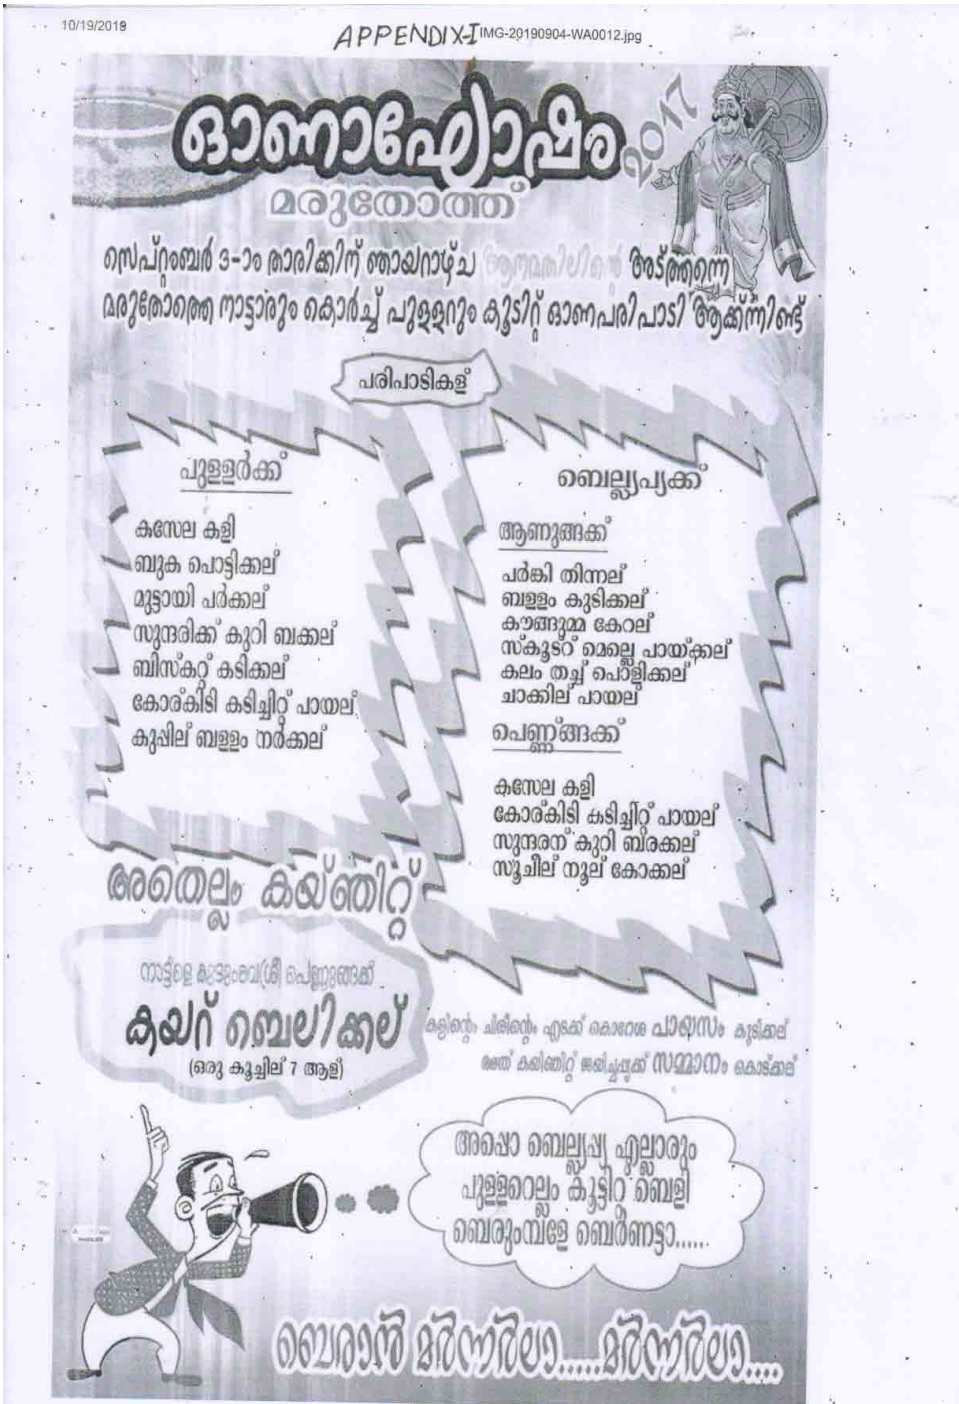 10/19/2019
APPENDIX-I IMG-20190904-WA0012.jpg
ഓണാഘോഷം
2017
മരുതോത്ത്
സെപ്റ്റംബർ 3-ാം താരിക്കിന് ഞായറാഴ്ച ആനമതിലിന്റെ അട്ത്തന്നെ
മരുതോത്തെ നാട്ടാരും കൊർച്ച് പുളളറും കൂടിറ്റ് ഓണപരിപാടി ആക്ക്ന്നിണ്ട്
പരിപാടികള്
പുളളർക്ക്
കസേല കളി
ബുക പൊട്ടിക്കല്
മുട്ടായി പർക്കല്
സുന്ദരിക്ക് കുറി ബക്കല്
ബിസ്കറ്റ് കടിക്കല്
കോര്കിടി കടിച്ചിറ്റ് പായല്
കുപ്പില് ബളളം നർക്കല്
ബെല്ല്യപ്യക്ക്
ആണുങ്ങക്ക്
പർങ്കി തിന്നല്
ബളളം കുടിക്കല്
കൗങ്ങുമ്മ കേറല്
സ്കൂട്ടറ് മെല്ലെ പായ്ക്കല്
കലം തച്ച് പൊളിക്കല്
ചാക്കില് പായല്
പെണ്ണ്ങ്ങക്ക്
കസേല കളി
കോര്കിടി കടിച്ചിറ്റ് പായല്
സുന്ദരന് കുറി ബരക്കല്
സൂചീല് നൂല് കോക്കല്
അതെല്ലം കയ്ഞിറ്റ്
നാട്ട്ളെ കുടുംബശ്രീ പെണ്ണുങ്ങക്ക്
കയറ് ബെലിക്കല്
(ഒരു കൂച്ചില് 7 ആള്)
കളിന്റെം ചിരീന്റെം എടക്ക് കൊറേശ പായസം കുടിക്കല്
അത് കയിഞ്ഞിറ്റ് ജയിച്ചപ്പക്ക് സമ്മാനം കൊട്ക്കല്
അപ്പൊ ബെല്ല്യപ്പ്യ എല്ലാരും
പുളളറെല്ലം കൂട്ടിറ്റ് ബെളി
ബെരുംമ്പളേ ബെർണട്ടാ.....
ബെരാൻ മർന്നർലാ.....മർന്നർലാ....